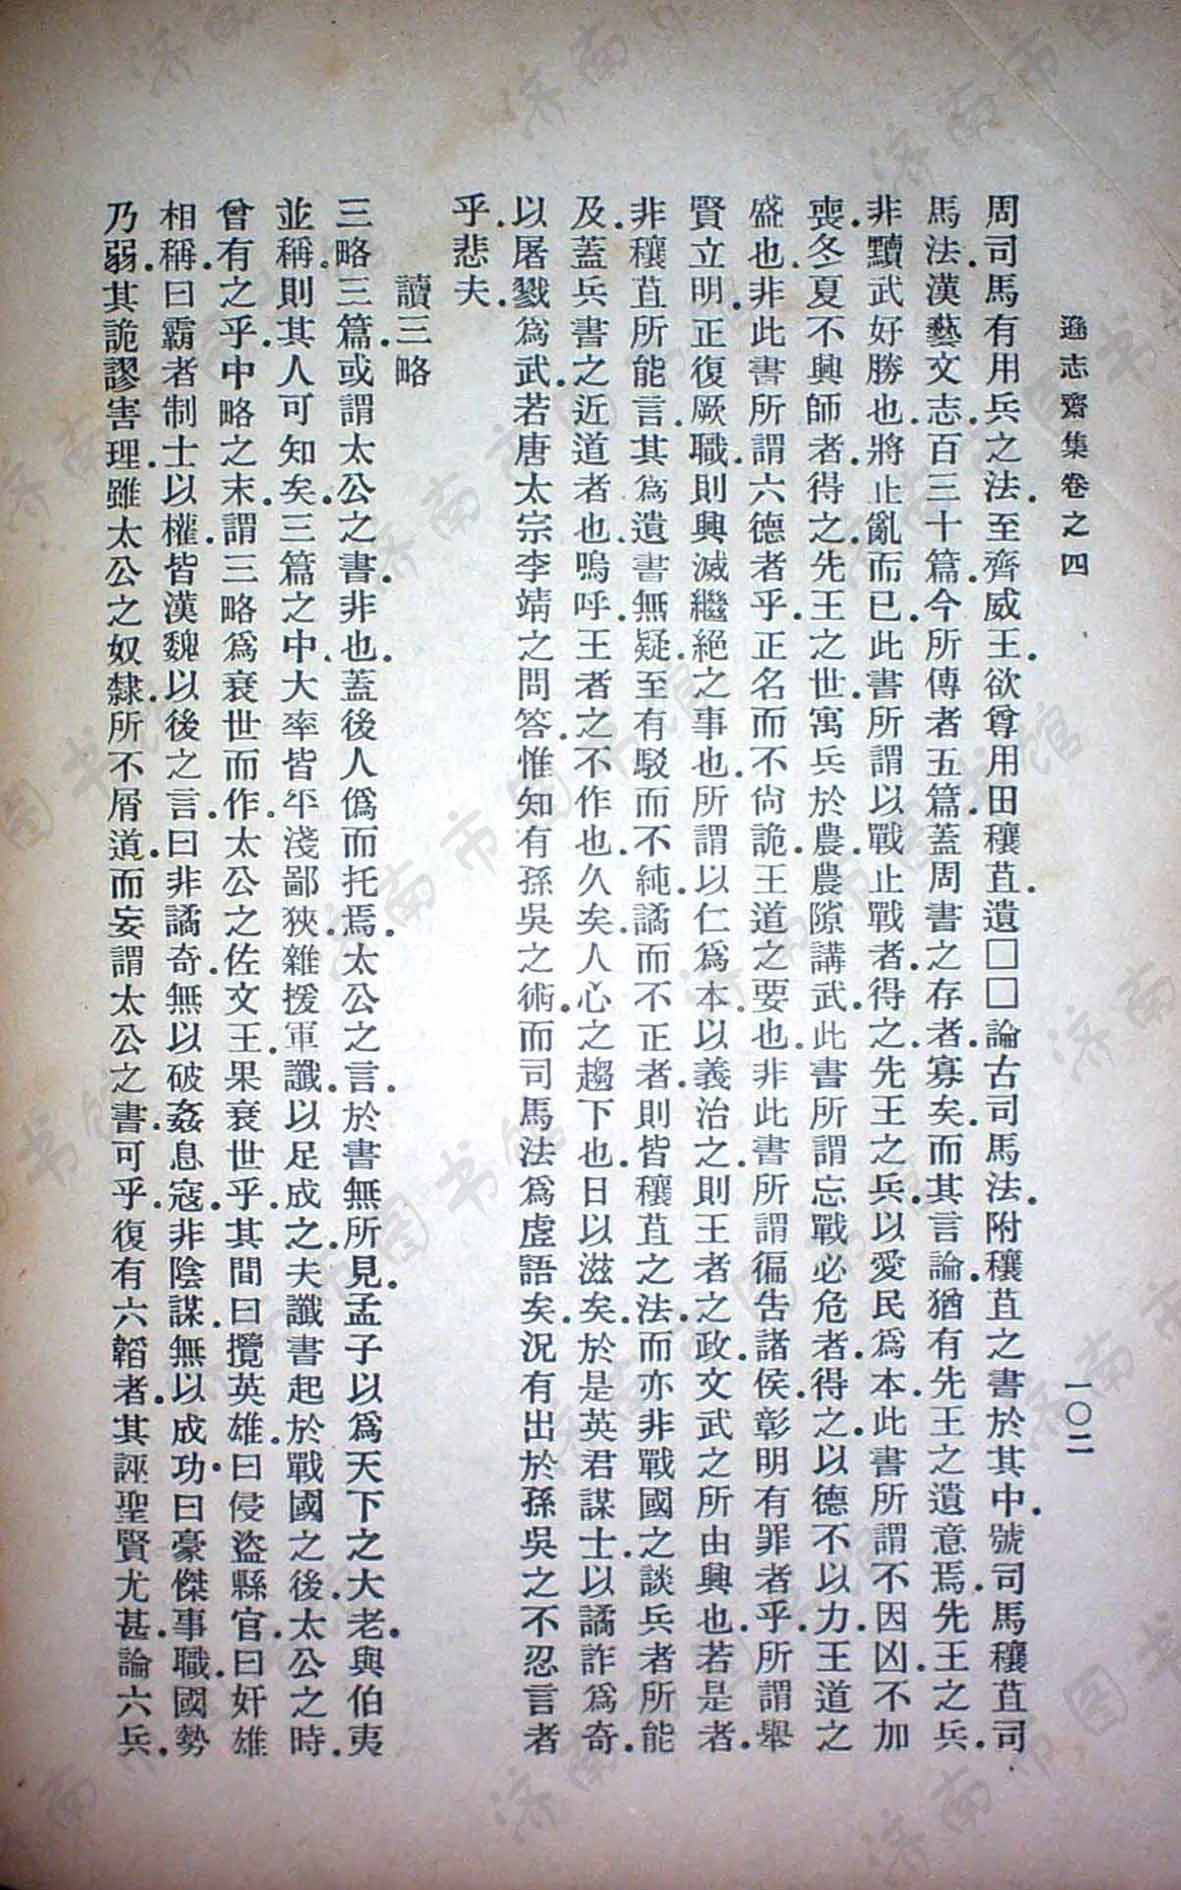 遜志齋集卷之四
一〇二
周司馬有用兵之法.至齊威王.欲尊用田穰苴.遺□□論古司馬法.附穰苴之書於其中.號司馬穰苴司
馬法.漢藝文志.百三十篇.今所傳者五篇.蓋周書之存者寡矣.而其言論.猶有先王之遺意焉.先王之兵.
非黷武好勝也.將止亂而已.此書所謂以戰止戰者.得之.先王之兵.以愛民爲本.此書所謂不因凶.不加
喪.冬夏不興師者.得之.先王之世.寓兵於農.農隙講武.此書所謂忘戰必危者.得之.以德不以力.王道之
盛也.非此書所謂六德者乎.正名而不尙詭.王道之要也.非此書所謂徧告諸侯.彰明有罪者乎.所謂舉
賢立明.正復厥職.則興滅繼絕之事也.所謂以仁爲本.以義治之.則王者之政.文武之所由興也.若是者.
非穰苴所能言.其爲遺書無疑.至有駁而不純.譎而不正者.則皆穰苴之法.而亦非戰國之談兵者所能
及.蓋兵書之近道者也.嗚呼.王者之不作也久矣.人心之趨下也.日以滋矣.於是英君謀士.以譎詐爲奇.
以屠戮爲武.若唐太宗李靖之問答.惟知有孫吳之術.而司馬法爲虛語矣.況有出於孫吳之不忍言者
乎.悲夫.
讀三略
三略三篇.或謂太公之書.非也.蓋後人僞而托焉.太公之言.於書無所見.孟子以爲天下之大老.與伯夷
並稱.則其人可知矣.三篇之中.大率皆平淺鄙狹.雜援軍讖.以足成之.夫讖書起於戰國之後.太公之時.
曾有之乎.中略之末.謂三略爲衰世而作.太公之佐文王.果衰世乎.其間曰攬英雄.曰侵盜縣官.曰奸雄
相稱.曰霸者制士以權.皆漢魏以後之言.曰非譎奇.無以破姦息寇.非陰謀.無以成功.曰豪傑事職.國勢
乃弱.其詭謬害理.雖太公之奴隸.所不屑道.而妄謂太公之書.可乎.復有六韜者.其誣聖賢尤甚.論六兵.
济南市图书馆